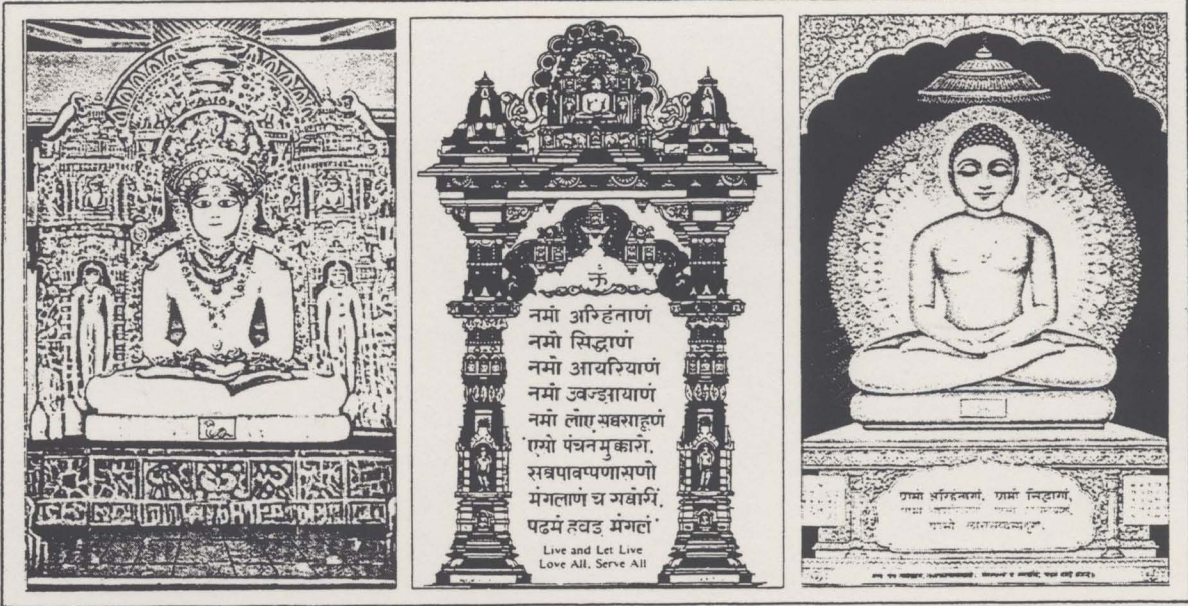 ॐ
नमो अरिहंताणं
नमो सिद्धाणं
नमो आयरियाणं
नमो उवज्झायाणं
नमो लोए सव्वसाहूणं
एसो पंचनमुक्कारो,
सव्वपावप्पणासणो
मंगलाणं च सव्वेसिं,
पढमं हवइ मंगलं
Live and Let Live
Love All, Serve All
णमो अरिहंताणं, णमो सिद्धाणं,